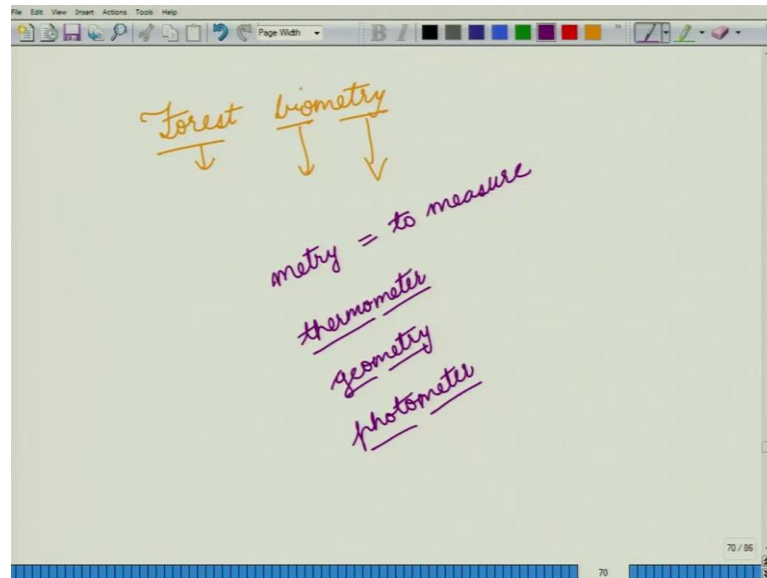 File Edit View Insert Actions Tools Help
Page Width
B I
Forest biometry
metry = to measure
thermometer
geometry
photometer
70 / 86
70